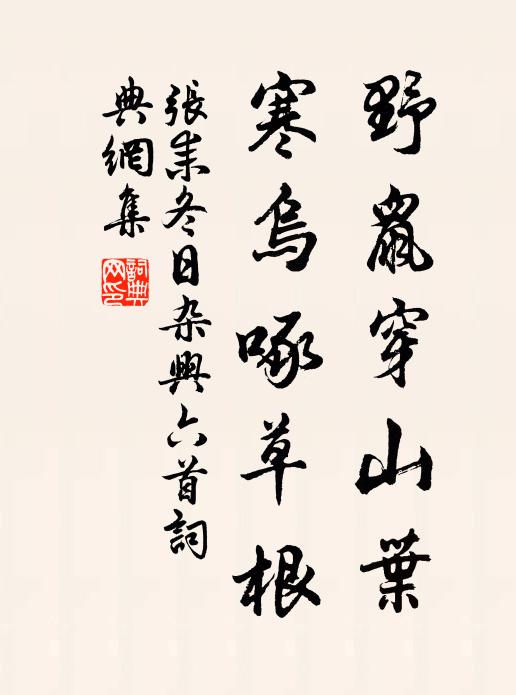 野鼠穿山葉
寒烏啄草根
張耒冬日杂興六首詞
典網集
詞典
网印